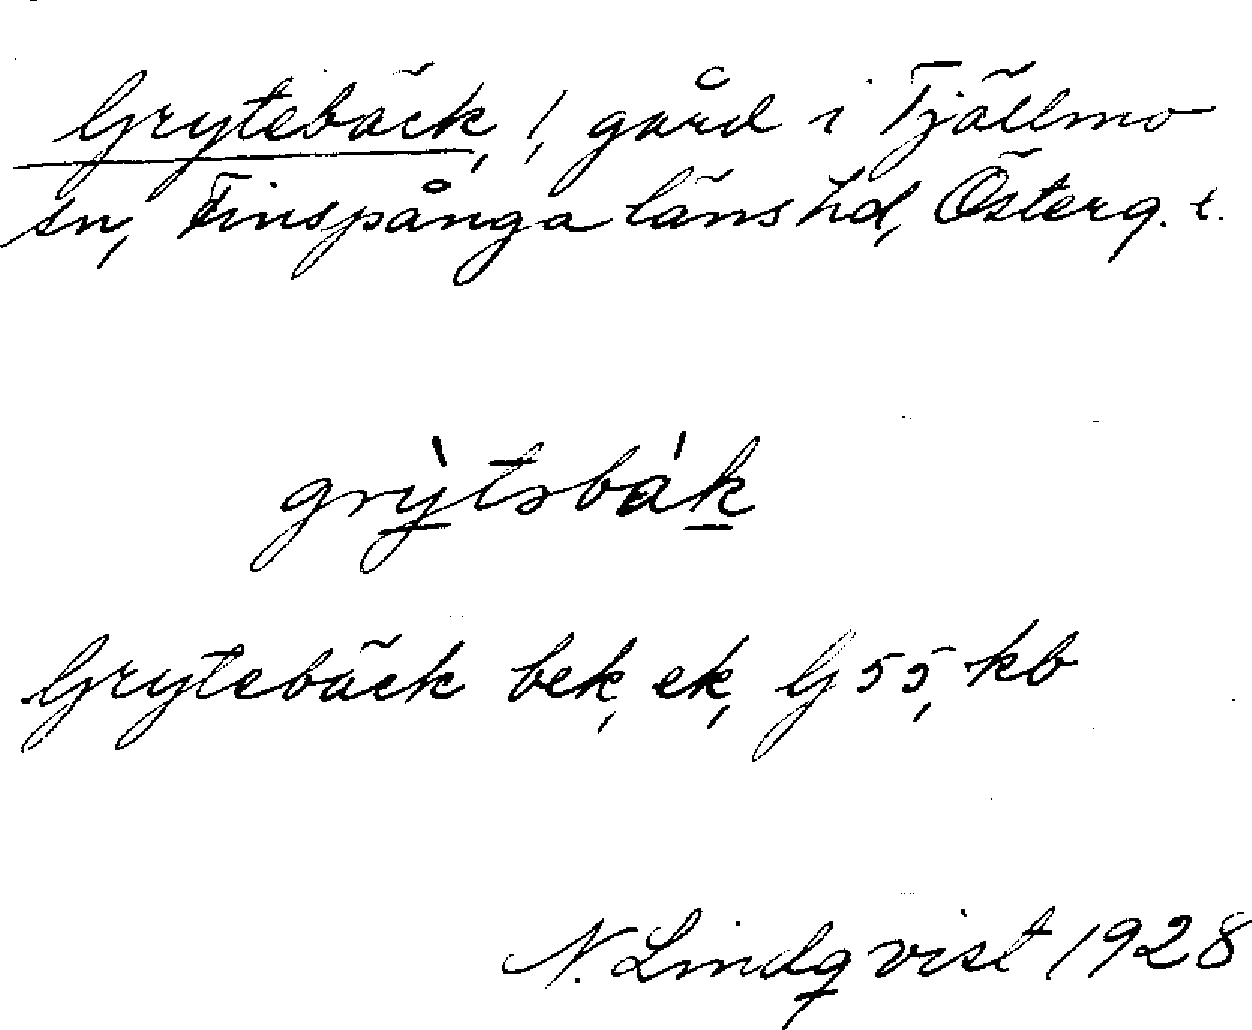 Grytebäck, 1, gård i Tjällmo
sn, Finspånga läns hd, Österg. l.
grỳtəbák
Grytebäck bek, ek, G 55, kb
N. Lindqvist 1928